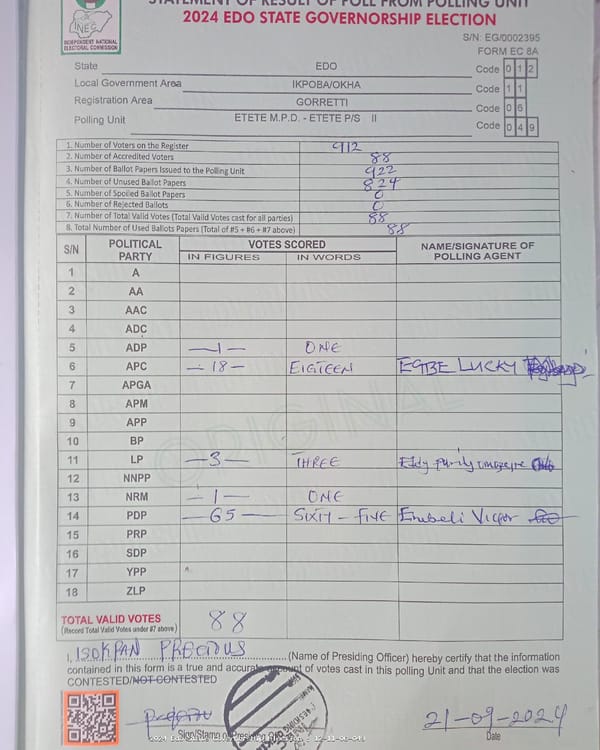 STATEMENT OF RESULT OF POLL FROM POLLING UNIT
2024 EDO STATE GOVERNORSHIP ELECTION
INEC
INDEPENDENT NATIONAL
ELECTORAL COMMISSION
S/N: EG/0002395
FORM EC 8A
State EDO Code 0 1 2
Local Government Area IKPOBA/OKHA Code 1 1
Registration Area GORRETTI Code 0 6
Polling Unit ETETE M.P.D. - ETETE P/S II Code 0 4 9
1. Number of Voters on the Register 912
2. Number of Accredited Voters 88
3. Number of Ballot Papers Issued to the Polling Unit 922
4. Number of Unused Ballot Papers 824
5. Number of Spoiled Ballot Papers 0
6. Number of Rejected Ballots 0
7. Number of Total Valid Votes (Total Valid Votes cast for all parties) 88
8. Total Number of Used Ballots Papers (Total of #5 + #6 + #7 above) 88
S/N POLITICAL PARTY VOTES SCORED NAME/SIGNATURE OF POLLING AGENT
IN FIGURES IN WORDS
1 A
2 AA
3 AAC
4 ADC
5 ADP —1— ONE
6 APC —18— EIGTEEN EGBE LUCKY
7 APGA
8 APM
9 APP
10 BP
11 LP —3— THREE Eddy
12 NNPP
13 NRM —1— ONE
14 PDP —65— SIXTY-FIVE Enebeli Victor
15 PRP
16 SDP
17 YPP
18 ZLP
ORIGINAL
TOTAL VALID VOTES 88
(Record Total Valid Votes under #7 above)
I, ISOKPAN PRECIOUS (Name of Presiding Officer) hereby certify that the information
contained in this form is a true and accurate account of votes cast in this polling Unit and that the election was
CONTESTED/NOT CONTESTED
21-09-2024
Sign/Stamp of Presiding Officer Date